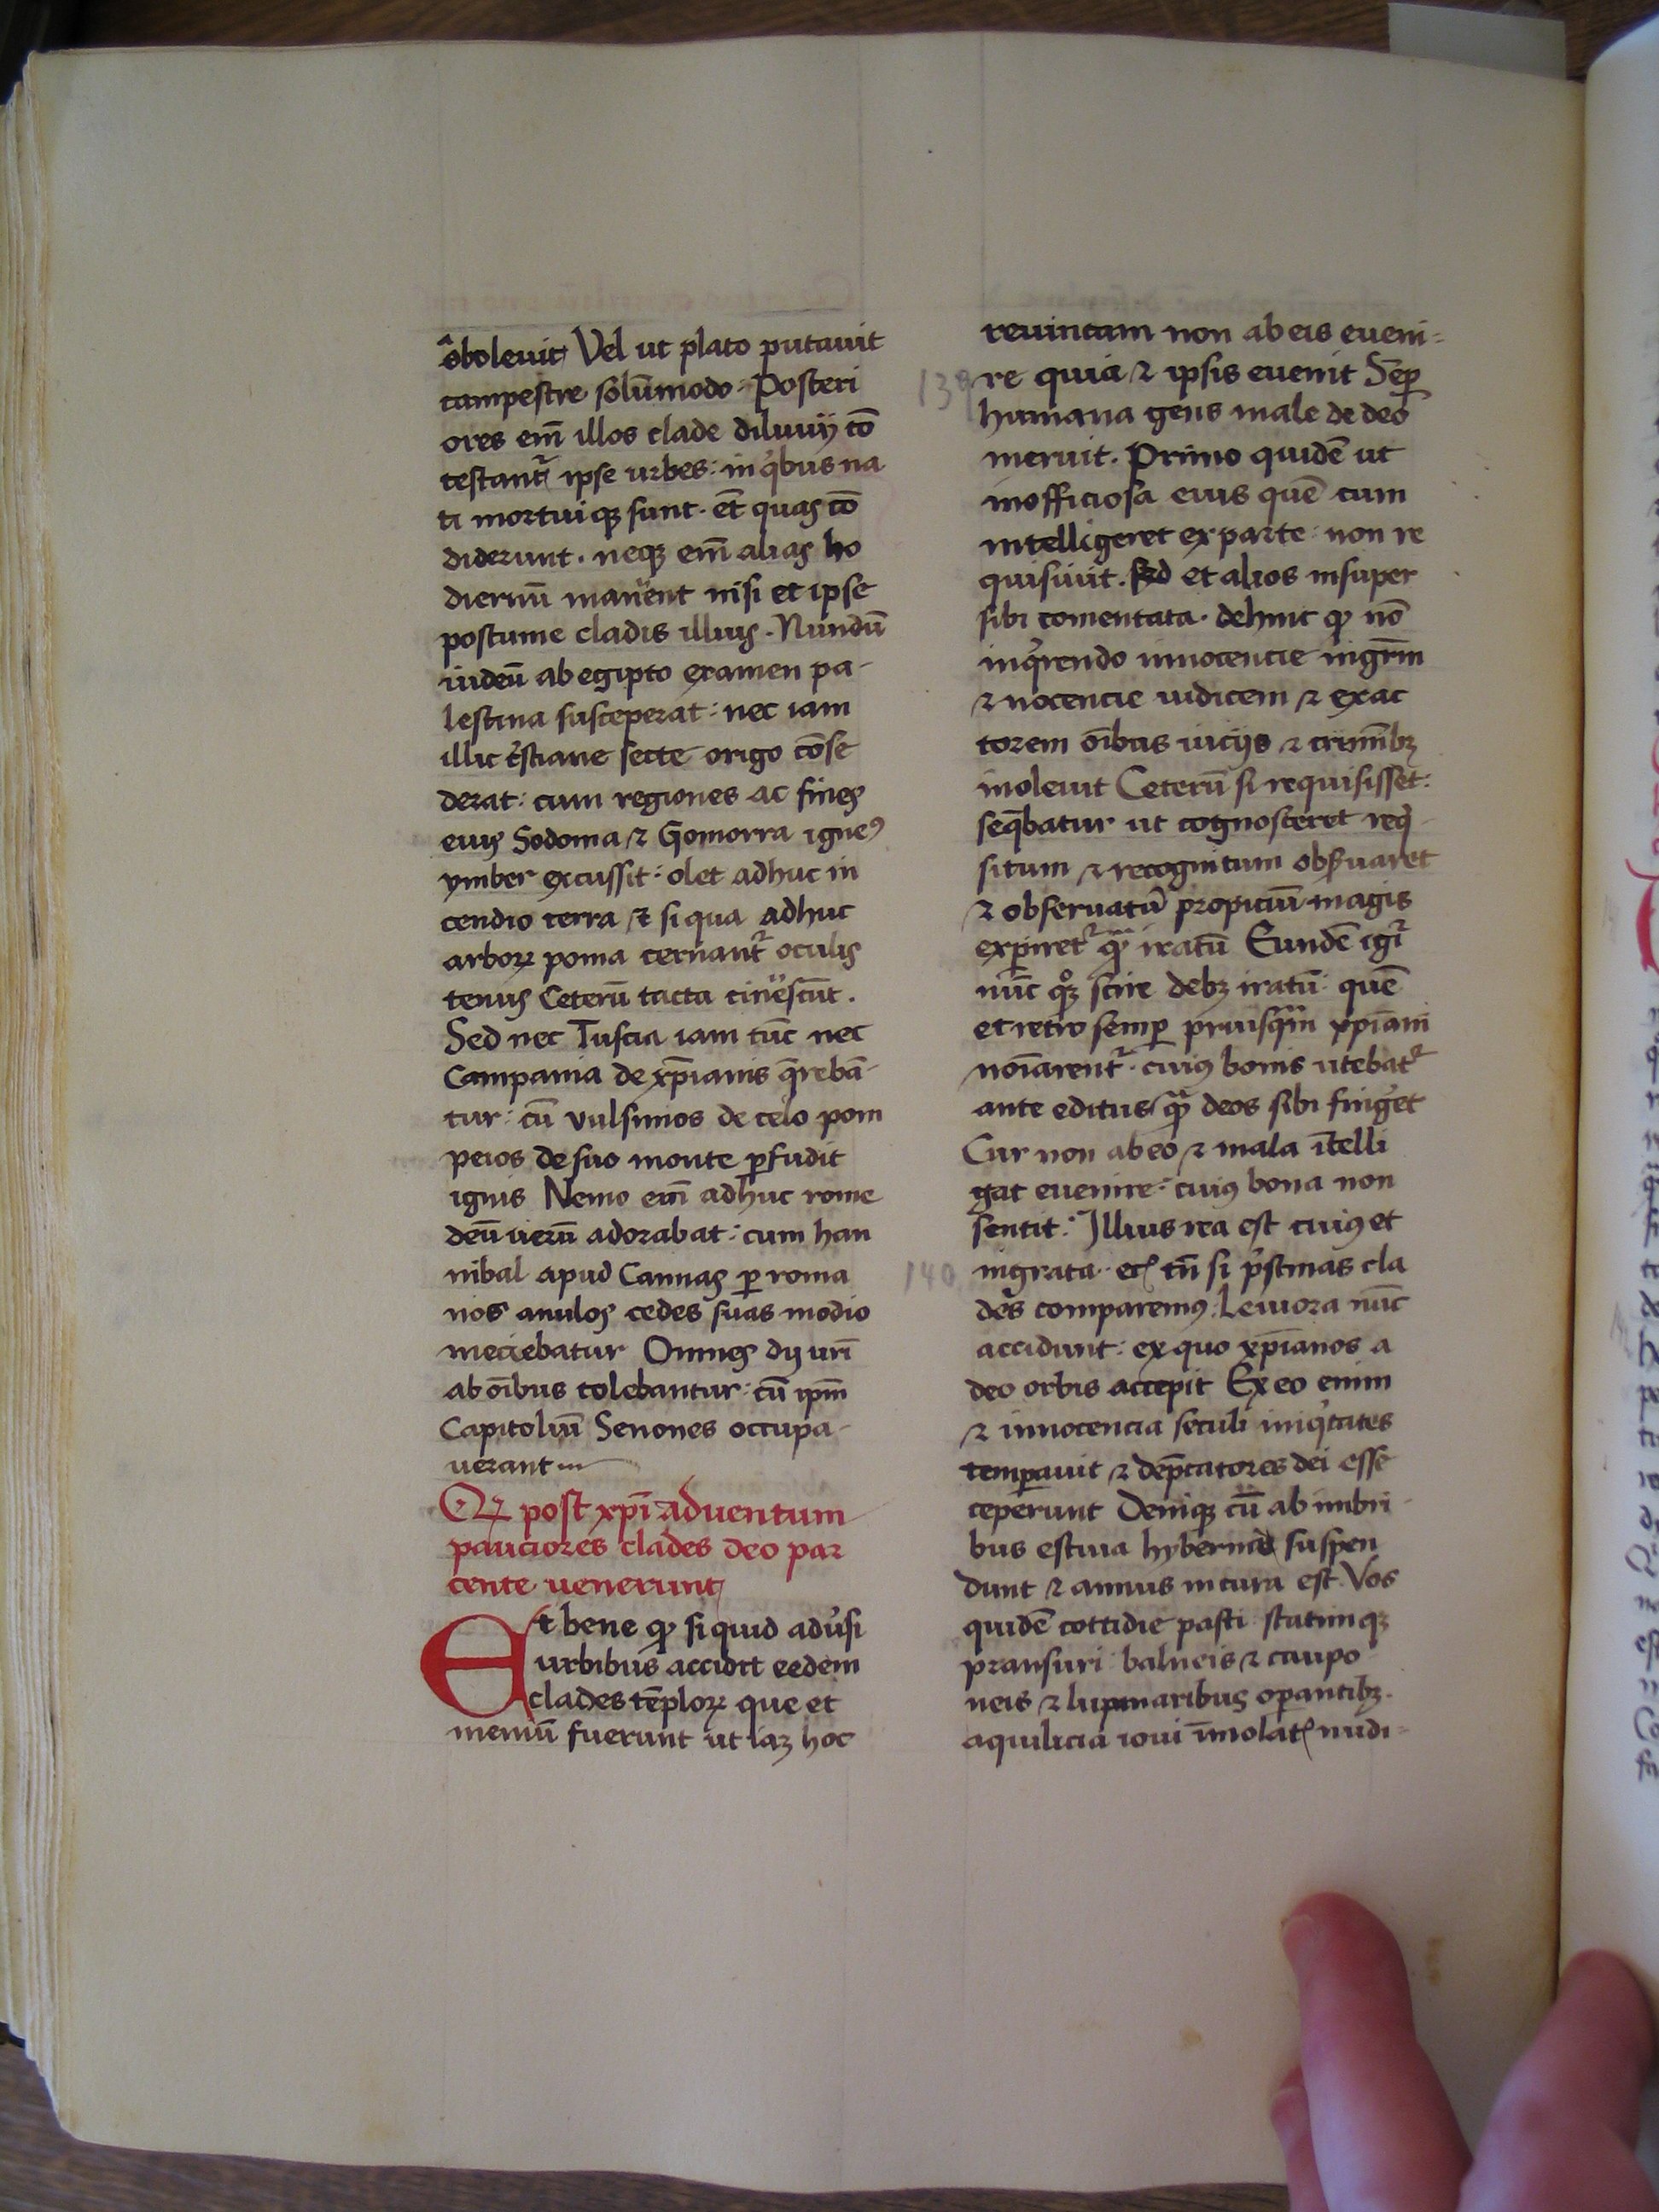 obolevit Vel ut plato putauit
campestre solūmodo · Posteri
ores em̄ illos clade diluuij cō
testant᷑ ipse urbes : in qͥbus na
ti mortuiqꝫ sunt · et̄ quas cō
diderunt · neqꝫ em̄ alias ho
diernū manerent nisi et ipse
postume cladis illius · Nundū
iudeū ab egipto examen pa-
lestina susceperat : nec iam
illic cͥstiane secte origo cōse
derat : cum regiones ac fines
eius Sodoma ⁊ Gomorra igneꝰ
ymber excussit : olet adhuc in
cendio terra ⁊ si qua adhuc
arboꝝ poma cernant᷑ oculis
tenus Ceterū tacta cinescūt .
Sed nec Tuscia iam tūc nec
Campania de xp̄ianis q̄rebā-
tur : cū vulsinios de celo pom
peios de suo monte ꝑfudit
ignis Nemo em̄ adhuc rome
deū uerū adorabat : cum han
nibal apud Cannas ꝑ roma
nos anulos cedes suas modio
meciebatur Omnes dij uri̅
ab oi̅bus colebantur : cū ip̄m
Capitoliū Senones occupa-
uerant
Qꝫ post xp̄i aduentum
pauciores clades deo par
cente uenerunt
Et bene ꝙ si quid adu̓si
urbibus accidit eedem
clades tēploꝝ que et
meniū fuerunt ut iaꝫ hoc
reuincam non ab eis eueni=
139 re quia ⁊ ipsis euenit Sēꝑ
humana gens male de deo
meruit . Primo quidē ut
inofficiosa eius quē cum
intelligeret ex parte · non re
quisiuit . sed et alios insuper
sibi comentata · dehinc ꝙ nō
inqͥrendo innocencie mgr̄m
⁊ nocencie iudicem ⁊ exac
torem oi̅bus uicijs ⁊ crimi̅bꝫ
inoleuit Ceterū si requisisset :
seq̄batur ut cognosceret reqͥ
situm ⁊ recognitum obẜuaret
⁊ obseruatū propiciū magis
exꝑiret᷑ qᷓꝫ iratū Eundē igi᷑
nūc qͦꝫ scire debꝫ iratū quē
et retro semꝑ priusqᷓm xp̄iani
noi̅arent᷑ · cuiꝰ bonis utebat᷑
ante editus qᷓꝫ deos sibi finget
Cur non ab eo ⁊ mala i̅telli
gat euenire : cuiꝰ bona non
sentit : Illius rea est cuiꝰ et
140 ingrata · et tn̄ si pͥstinas cla
des comparemꝰ : Leuiora nūc
accidunt : ex quo xp̄ianos a
deo orbis accepit Ex eo enim
⁊ innocencia seculi iniqͥtates
temꝑauit ⁊ dep̄catores dei esse
ceperunt Deniqꝫ cū ab imbri
bus estiua hyberna suspen
dunt ⁊ annus in cura est · Vos
quidē cottidie pasti statimqꝫ
pransuri balneis ⁊ caupo
neis ⁊ lupanaribus oꝑantibꝫ ·
aquilicia ioui i̅molat᷑ nudi=